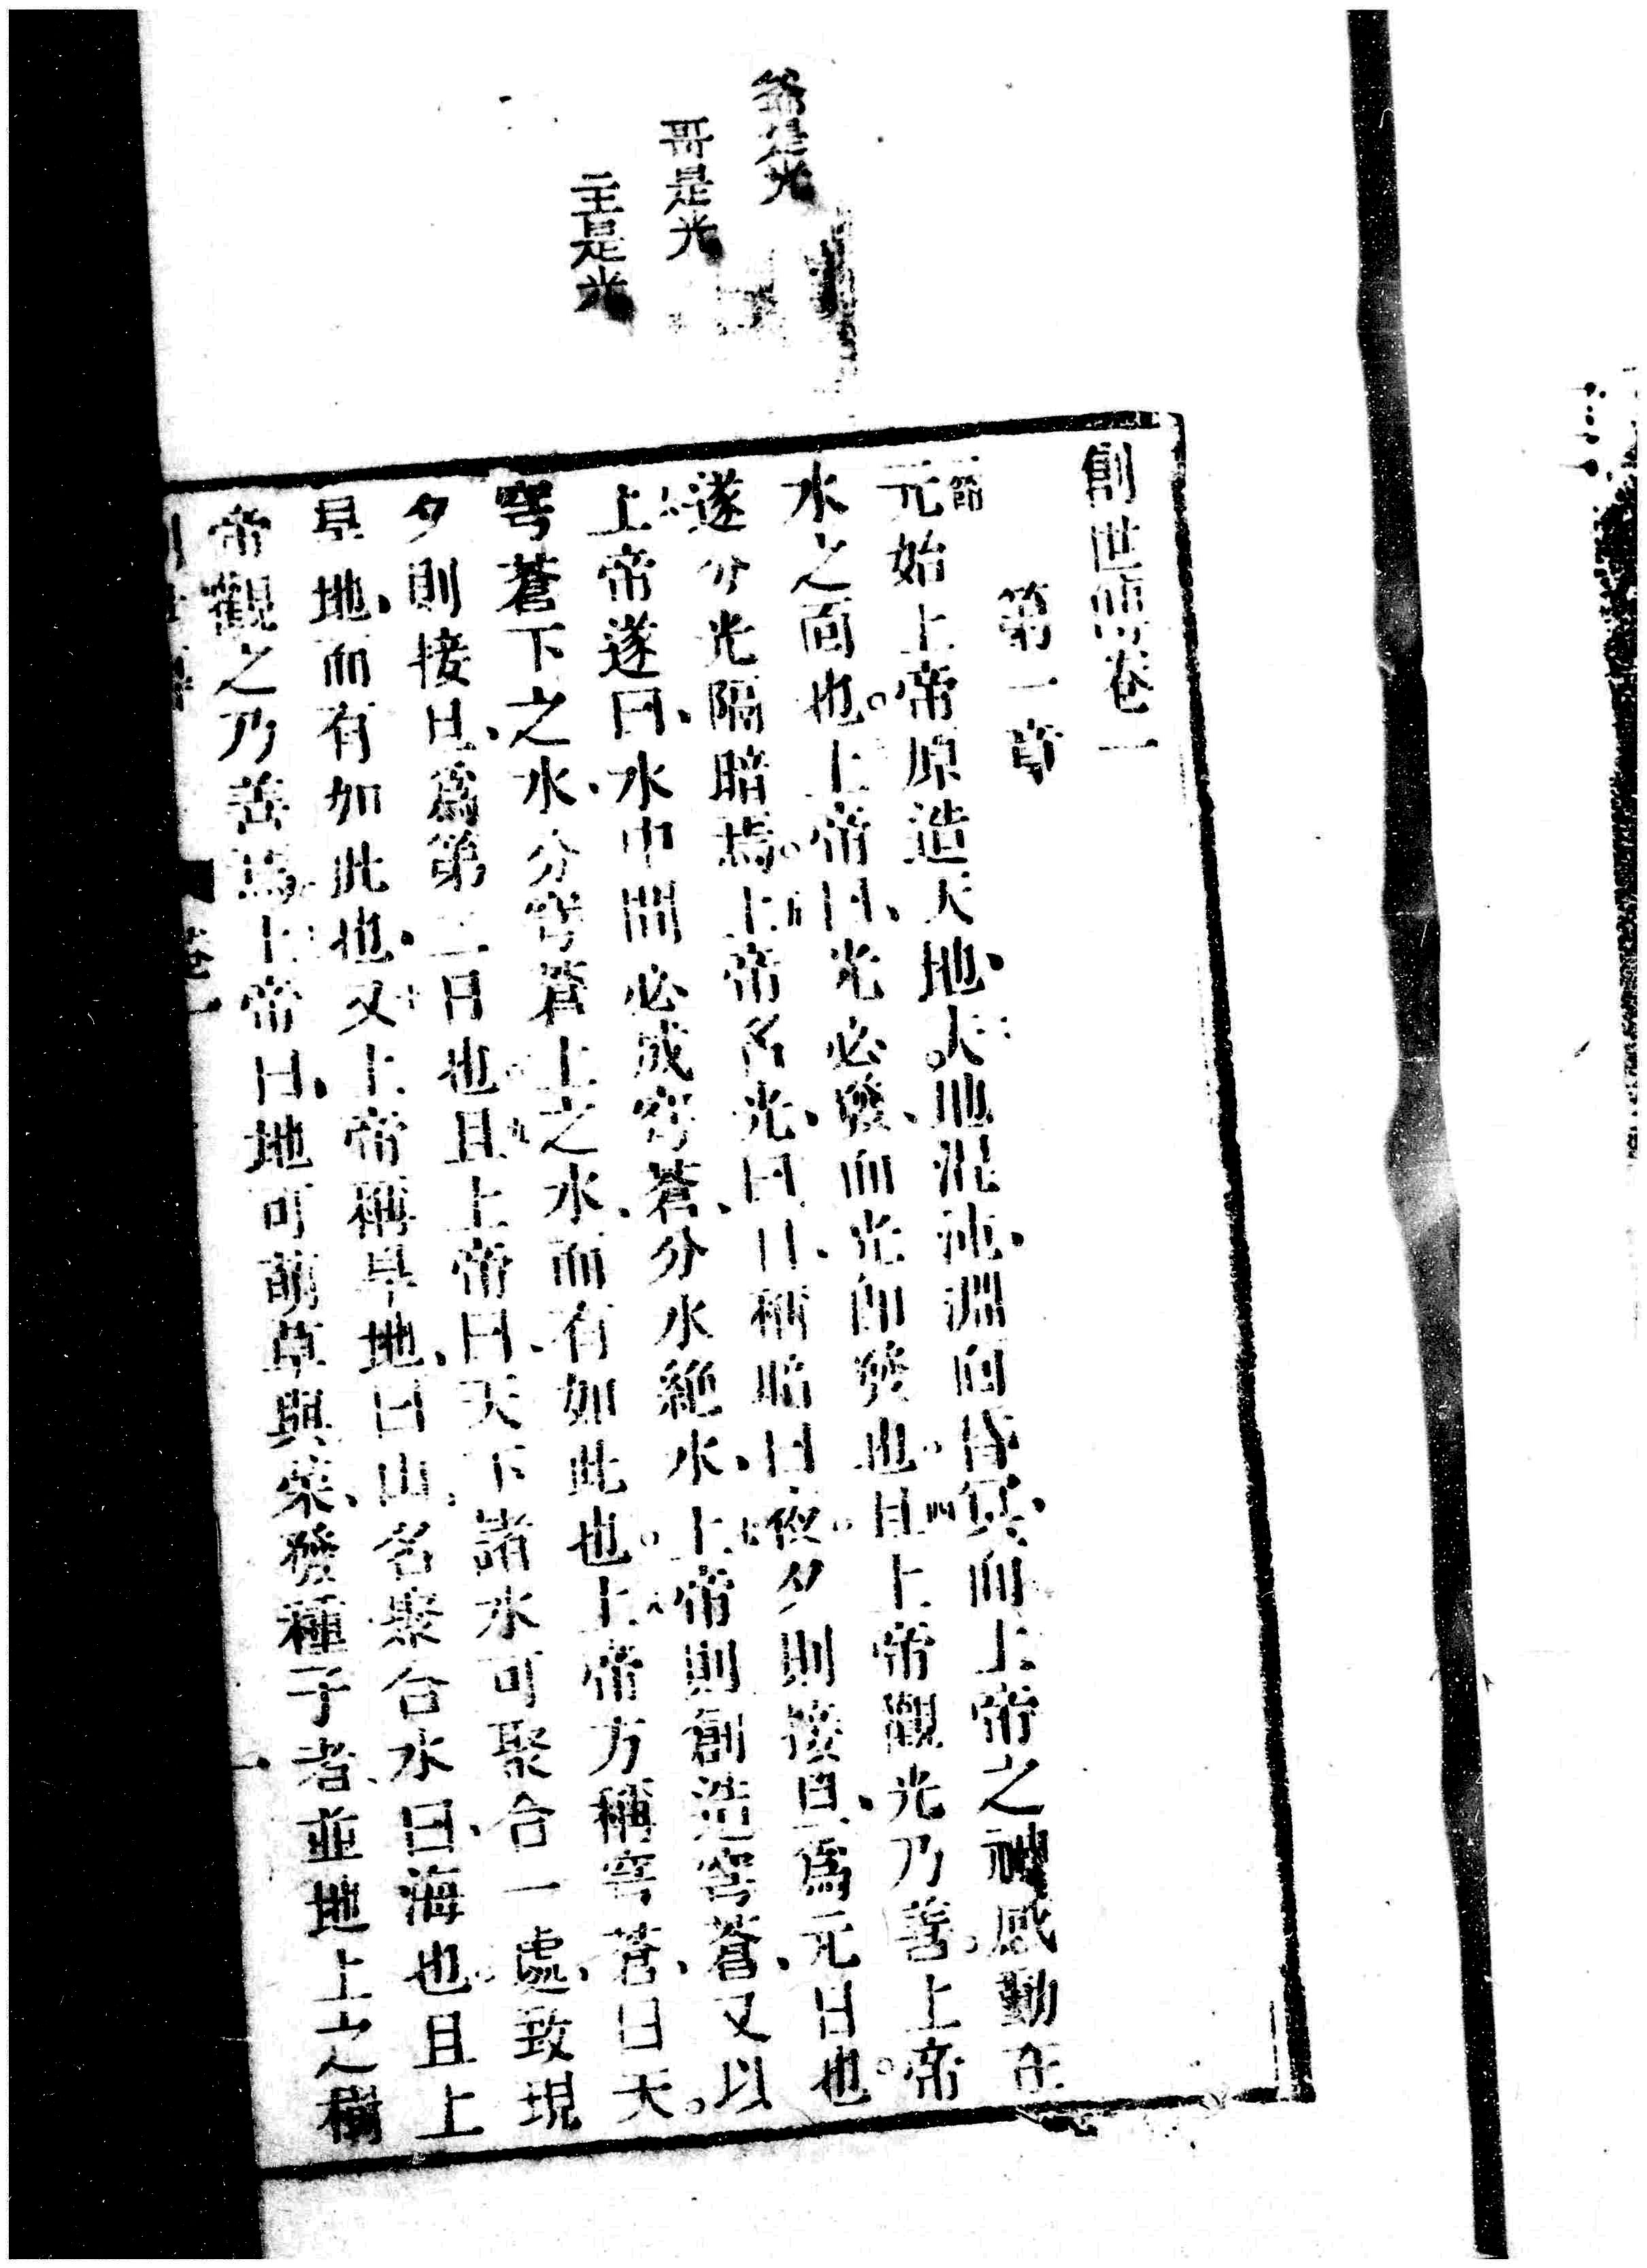 爺是光
哥是光
主是光
創世傳卷一
第一章
一節
元始上帝原造天地、二天地混沌、淵面昏冥、而上帝之神感動在
水之面也。三上帝曰、光必發、而光卽發也。四且上帝觀光乃善。上帝
遂分光隔暗焉。五上帝名光、曰日、稱暗曰夜。夕則接旦、爲元日也。
六上帝遂曰、水中間必成穹蒼、分水絕水、七上帝則創造穹蒼、又以
穹蒼下之水、分穹蒼上之水、而有如此也。八上帝方稱穹蒼、曰天。
夕則接旦、爲第二日也。九且上帝曰、天下諸水可聚合一處、致現
旱地、而有如此也、十又上帝稱旱地、曰山、名聚合水曰海也。且上
帝觀之乃善焉。上帝曰、地可萌草與菜、發種子者、並地上之樹
一